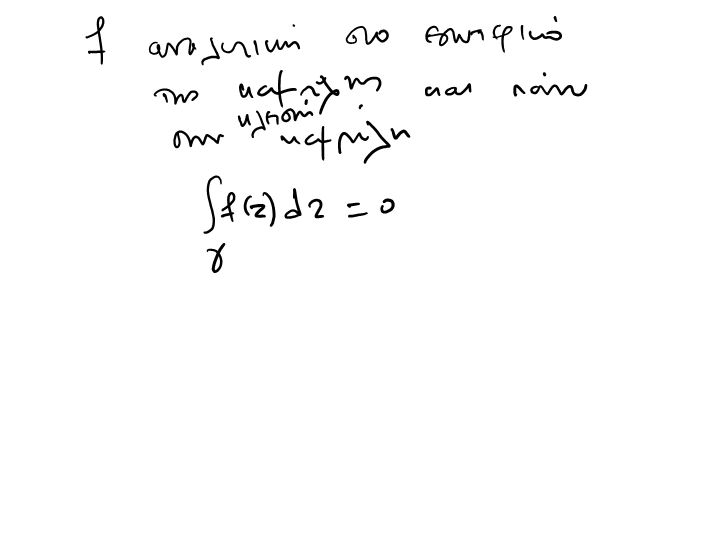 f αναλυτική στο εσωτερικό
της καμπύλης και πάνω
στην κλειστή καμπύλη
∫f(z)dz = 0
γ